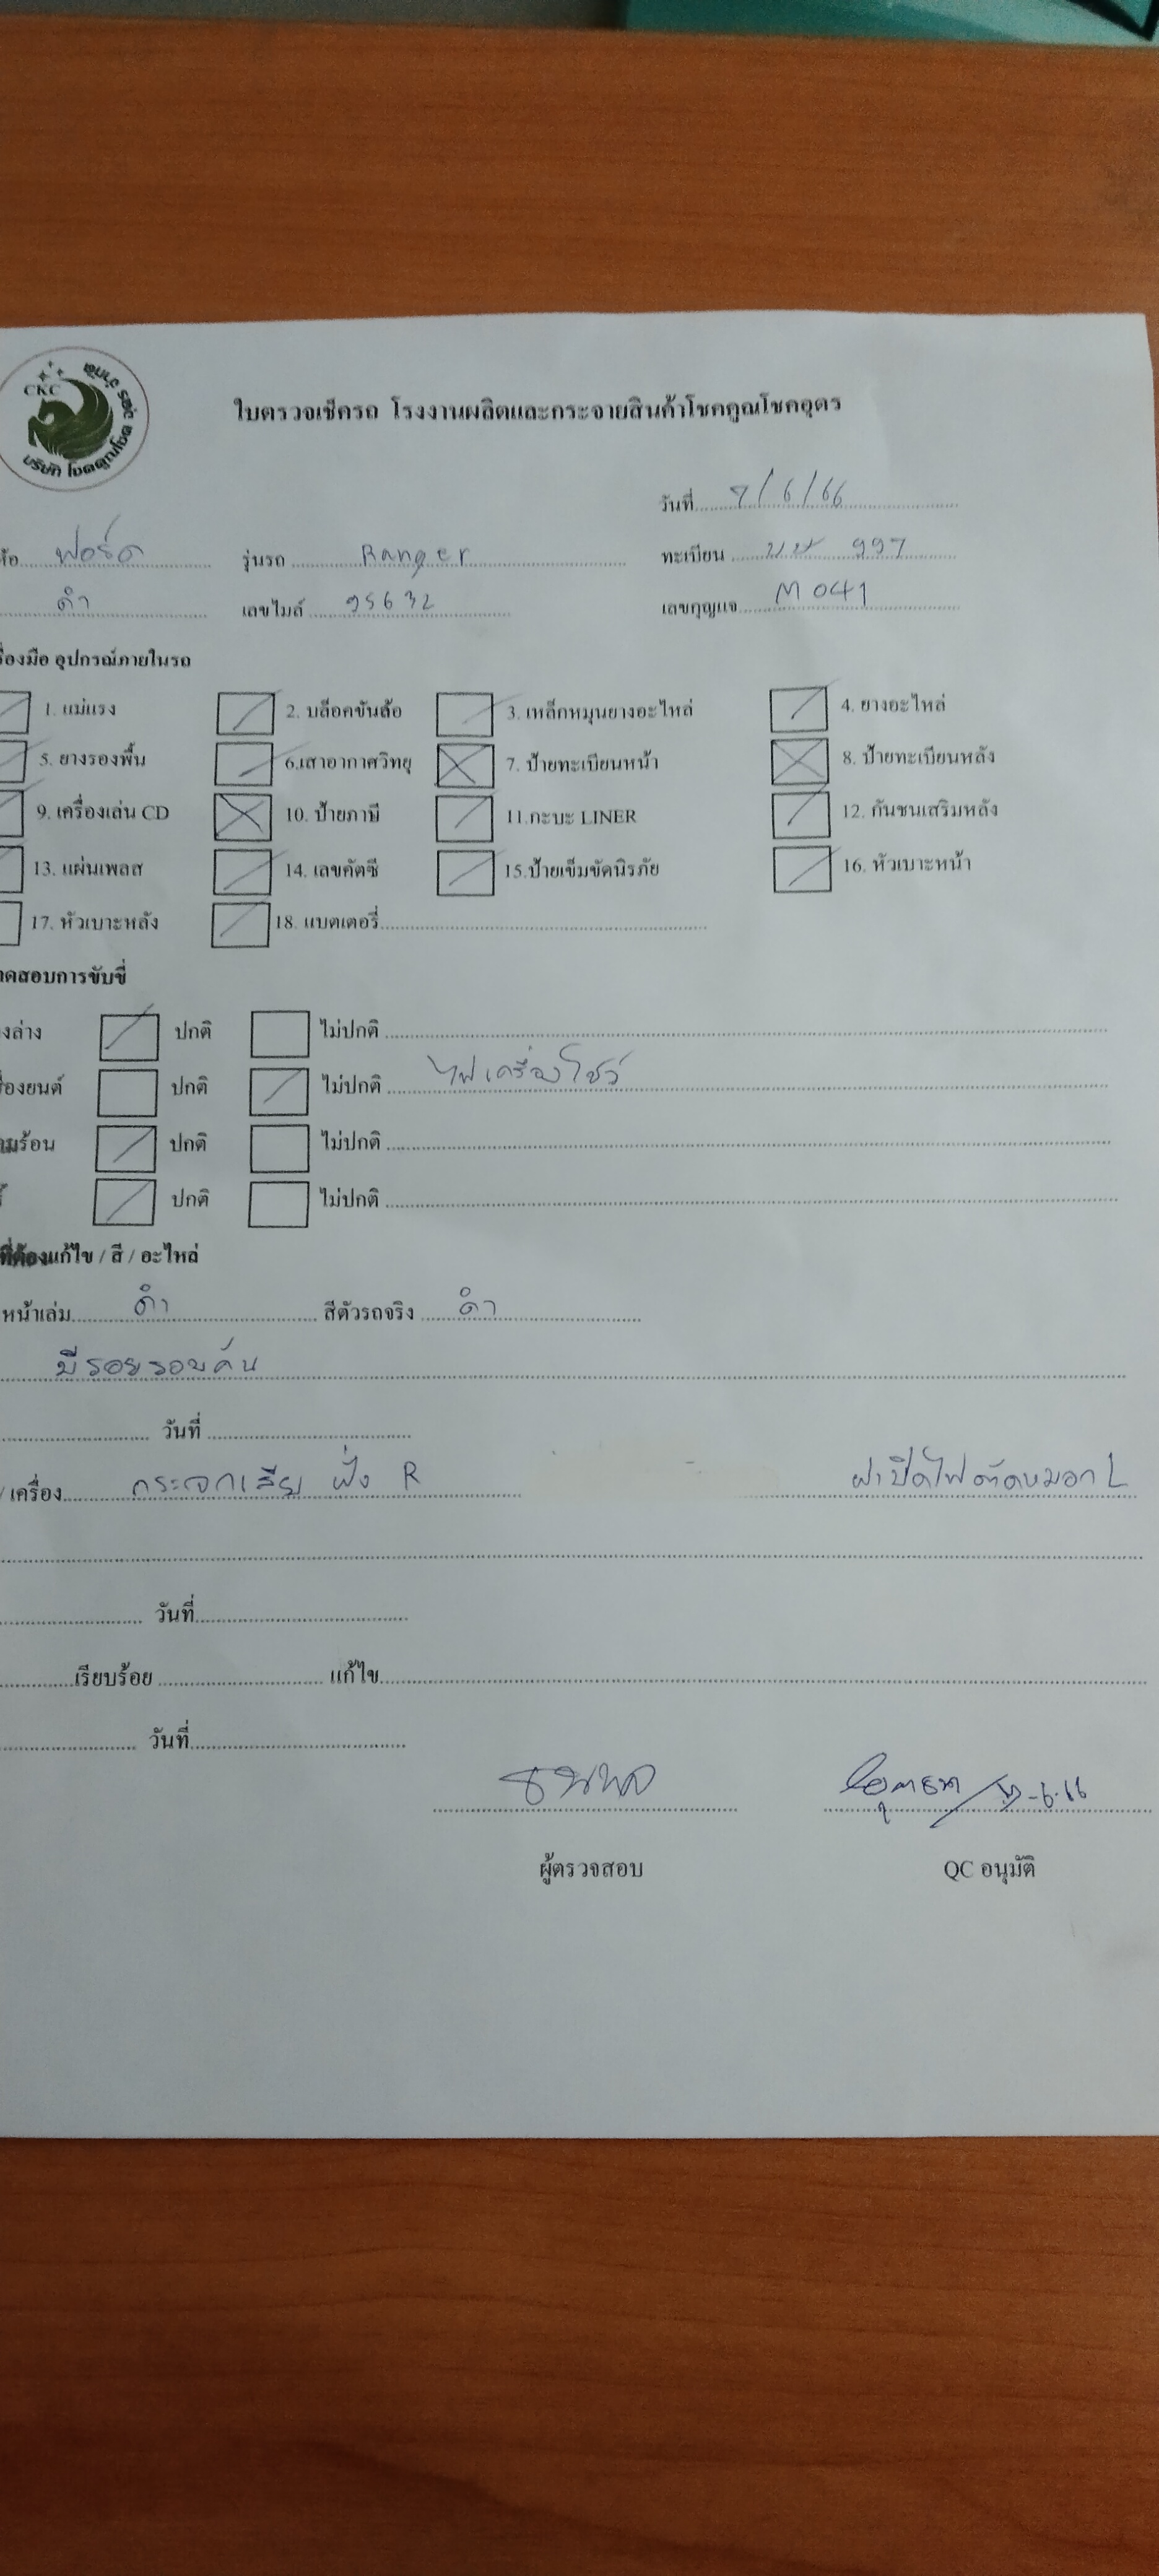 CKC
บริษัท โชคคูณโชค อุดร จำกัด
ใบตรวจเช็ครถ โรงงานผลิตและกระจายสินค้าโชคคูณโชคอุดร
วันที่ 7/6/66
ฟอร์ด รุ่นรถ Ranger ทะเบียน บษ 997
ดำ เลขไมล์ 95632 เลขกุญแจ M 041
อุปกรณ์ภายในรถ
1. แม่แรง 2. บล็อคขันล้อ 3. เหล็กหมุนยางอะไหล่ 4. ยางอะไหล่
5. ยางรองพื้น 6.เสาอากาศวิทยุ 7. ป้ายทะเบียนหน้า 8. ป้ายทะเบียนหลัง
9. เครื่องเล่น CD 10. ป้ายภาษี 11.กะบะ LINER 12. กันชนเสริมหลัง
13. แผ่นเพลส 14. เลขคัตซี 15.ป้ายเข็มขัดนิรภัย 16. หัวเบาะหน้า
17. หัวเบาะหลัง 18. แบตเตอรี่
ทดสอบการขับขี่
งล่าง ปกติ ไม่ปกติ
องยนต์ ปกติ ไม่ปกติ ไฟเครื่องโชว์
ามร้อน ปกติ ไม่ปกติ
ปกติ ไม่ปกติ
ที่ต้องแก้ไข / สี / อะไหล่
หน้าเล่ม ดำ สีตัวรถจริง ดำ
มีรอยรอบคัน
วันที่
/ เครื่อง กระจกเสีย ฝั่ง R ฝาปิดไฟตัดหมอก L
วันที่
เรียบร้อย แก้ไข
วันที่
ธนพล
ผู้ตรวจสอบ QC อนุมัติ